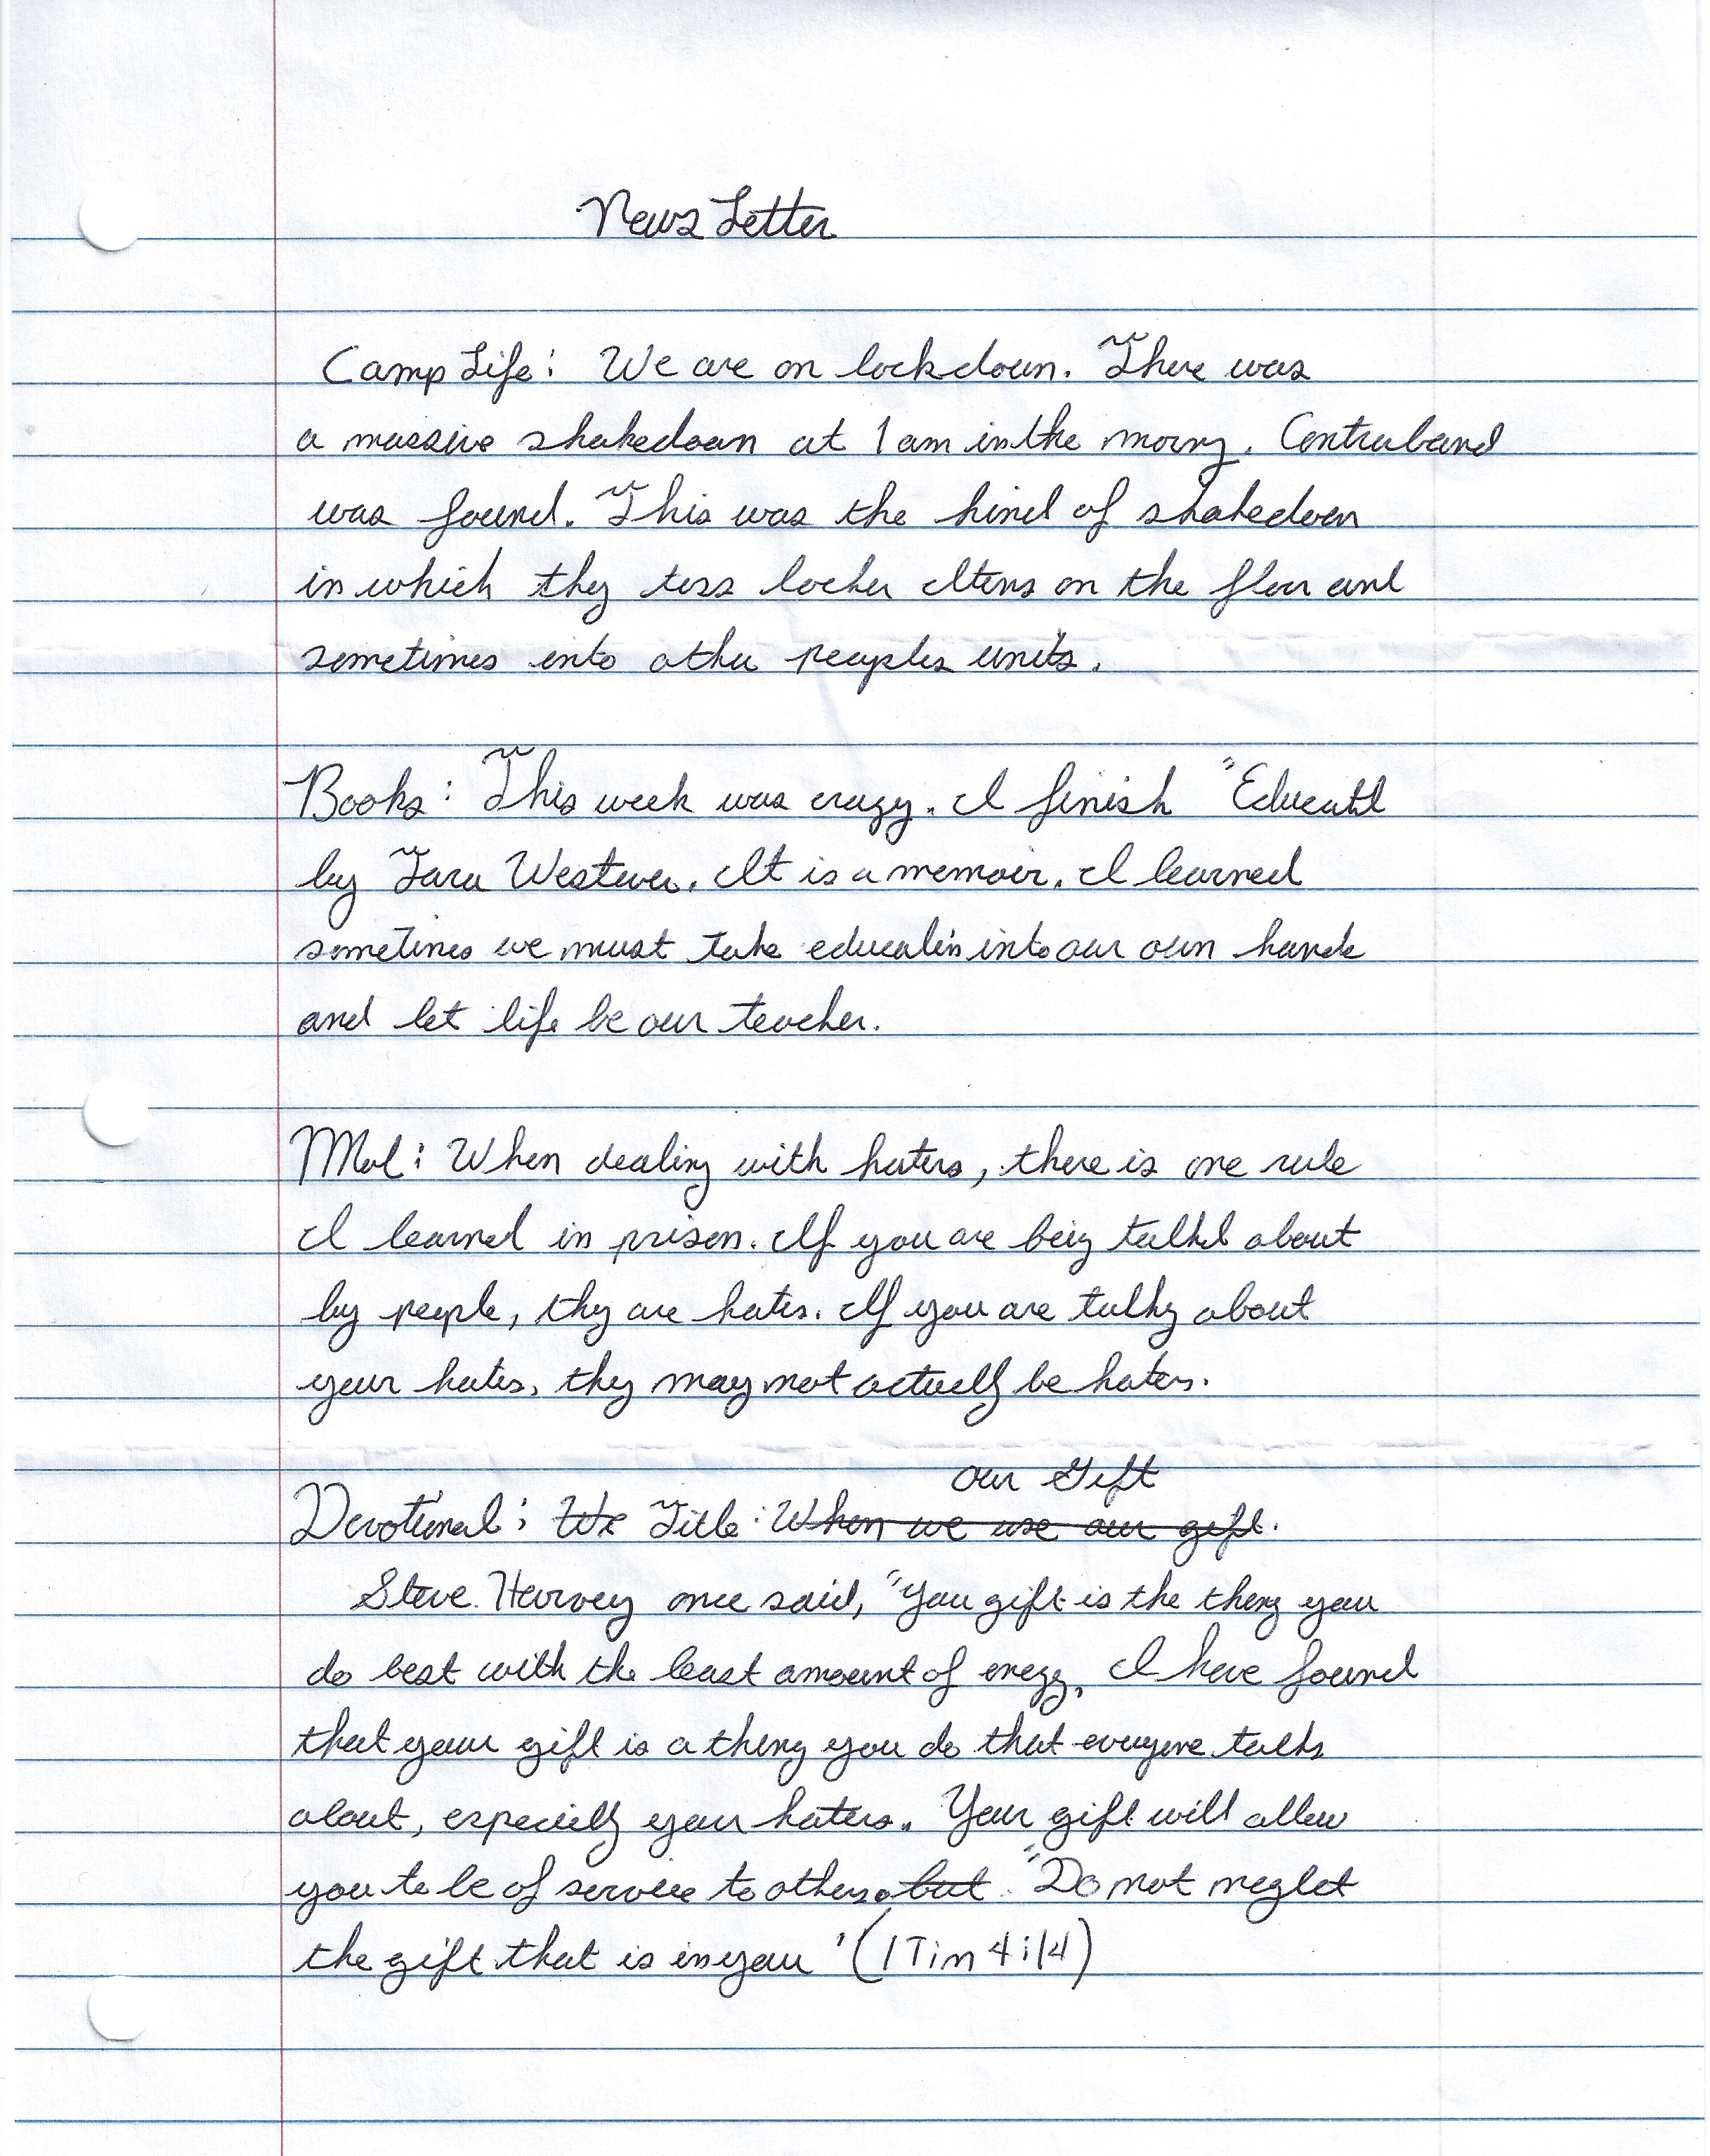 News Letter
Camp Life: We are on lockdown. There was
a massive shakedown at 1 am in the morng. Contraband
was found. This was the kind of shakedown
in which they toss locker Items on the floor and
sometimes into other peoples units.
Books: This week was crazy. I finish "Educatd
by Tara Westover. It is a memoir. I learned
sometimes we must take education into our own hands
and let life be our teacher.
When dealing with haters, there is one rule
I learned in prison. If you are being talked about
by people, they are haters. If you are talkg about
your haters, they may not actually be haters.
our Gift
Devotional: We Title: When we use our gift.
Steve Harvey once said, "You gift is the thing you
do best with the least amount of energy, I have found
that your gift is a thing you do that everyone talks
about, especially your haters. Your gift will allow
you to be of service to others. but "Do not neglect
the gift that is in you" (1 Tim 4:14)